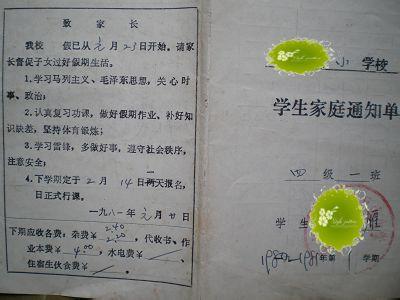 致 家 长
我校 假已从元月23日开始。请家
长督促子女过好假期生活。
1.学习马列主义、毛泽东思想,关心时
事、政治;
2.认真复习功课,做好假期作业、补好知
识缺差,坚持体育锻炼;
3.学习雷锋,多做好事,遵守社会秩序,
注意安全;
4.下学期定于2月14日一天报名,
日正式行课。
一九八一年元月廿日
2.40
下期应收各费:杂费¥2.20,代收书、作
业本费¥4.00,水电费¥
住宿生伙食费¥
小学校
学生家庭通知单
四级一班
学生
1980-1981年第1学期